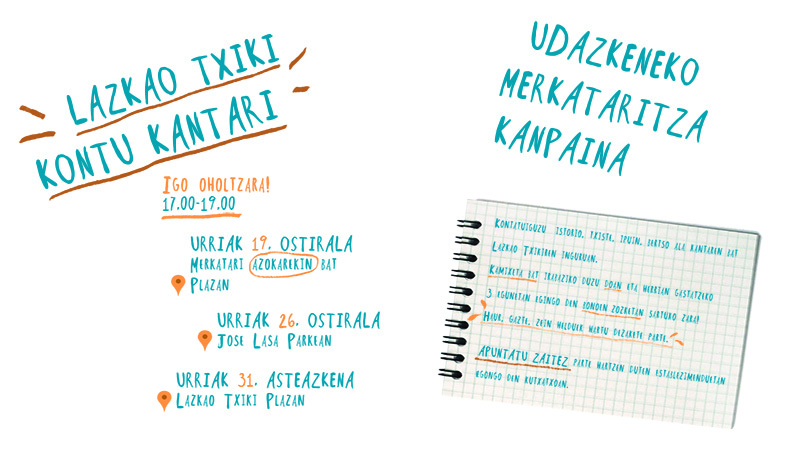 LAZKAO TXIKI
KONTU KANTARI
IGO OHOLTZARA!
17.00-19.00
URRIAK 19. OSTIRALA
MERKATARI AZOKAREKIN BAT
PLAZAN
URRIAK 26. OSTIRALA
JOSE LASA PARKEAN
URRIAK 31. ASTEAZKENA
LAZKAO TXIKI PLAZAN
UDAZKENEKO
MERKATARITZA
KANPAINA
KONTATUIGUZU ISTORIO, TXISTE, IPUIN, BERTSO ALA KANTAREN BAT
LAZKAO TXIKIREN INGURUAN.
KAMIXETA BAT IRABAZIKO DUZU DOAN ETA HERRIAN GASTATZEKO
3 EGUNETAN EGINGO DEN BONOEN ZOZKETAN SARTUKO ZARA!
HAUR, GAZTE, ZEIN HELDUEK HARTU DEZAKETE PARTE.
APUNTATU ZAITEZ PARTE HARTZEN DUTEN ESTABLEZIMENDUETAN
EGONGO DEN KUTXATXOAN.